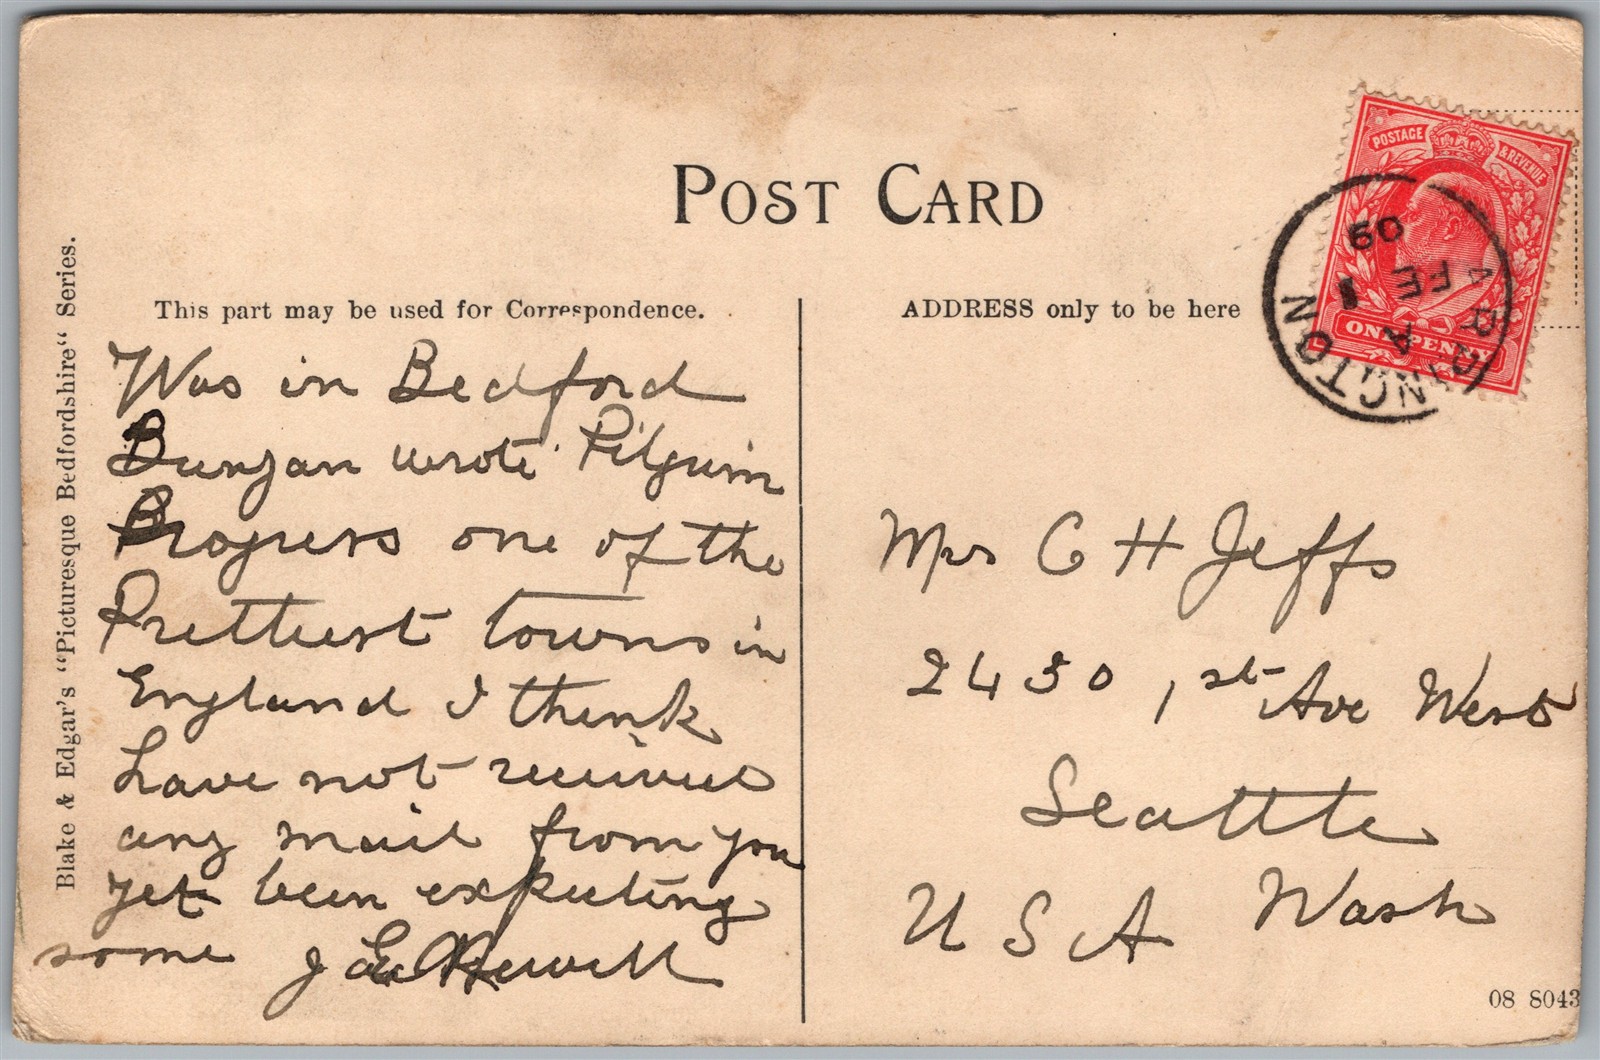 POST CARD
Blake & Edgar's "Picturesque Bedfordshire" Series.
This part may be used for Correspondence.
Was in Bedford
Bunyan wrote Pilgrim
Progress one of the
Prettiest towns in
England I think
have not received
any mail from you
yet been expecting
some J E
ADDRESS only to be here
POSTAGE & REVENUE
ONE PENNY
A
FE
09
Mrs C H Jeffs
2430 1st Ave West
Seattle
Wash
U S A
08 8043